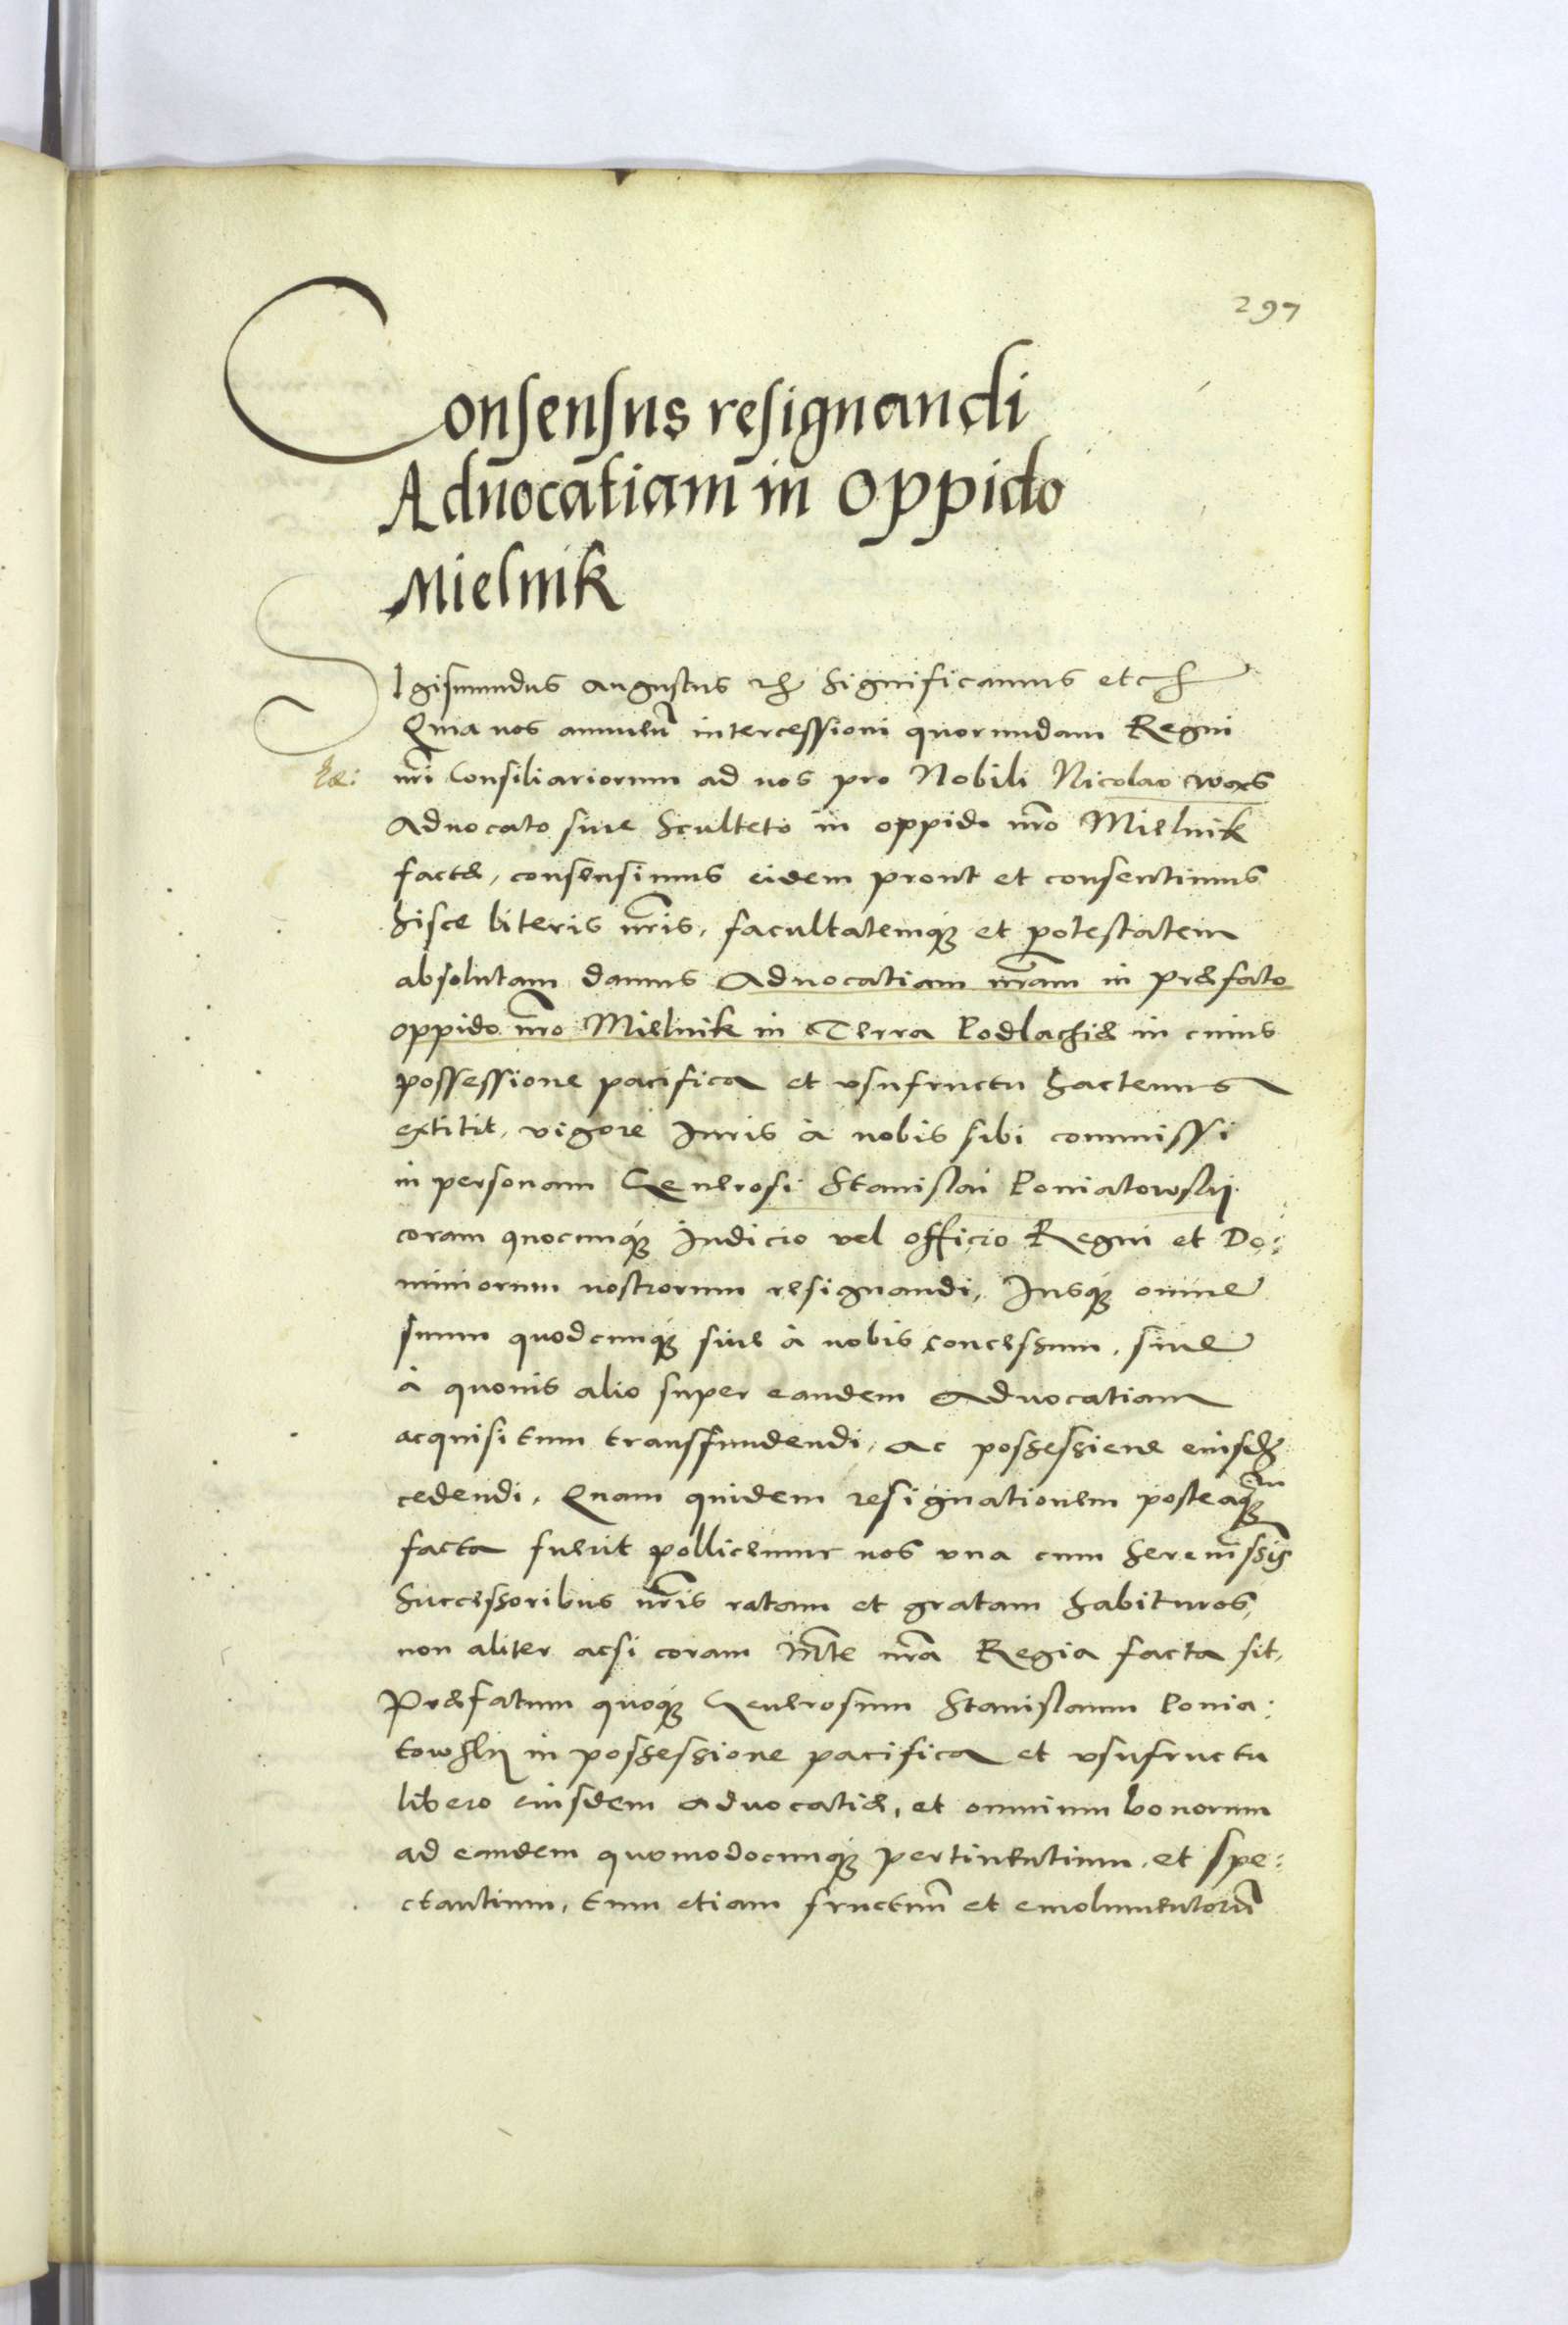 297
Consensus resignandi
Aduocatiam in oppido
Mielnik
Sigismundus Augustus etc Significamus etc
Quia nos annuen͞ intercessioni quorundam Regni
nr͞i Consiliariorum ad nos pro Nobili Nicolao
Aduocato siue Sculteto in oppido nr͞o Mielnik
factæ, consensimus eidem prout et consentimus
hisce literis nr͞is, facultatemq́ꝫ et potestatem
absolutam damus Aduocatiam nr͞am in præfato
oppido nr͞o Mielnik in Terra Podlachiæ in cuius
possessione pacifica et vsufructu hactenus
extitit, vigore Iuris à nobis sibi commissi
in personam Generosi Stanislai Poniatowskij
coram quocunq́ꝫ Iudicio vel officio Regni et Do:
miniorum nostrorum resignandi, Iusq́ꝫ omne
suum quodcunq́ꝫ siue à nobis concessum, siue
à quouis alio super eandem Aduocatiam
acquisitum transfundendi, ac possessione eiusdꝫ
cedendi. Quam quidem resignationem posteaq́ꝫm
facta fuerit pollicemur nos vna cum Sereniss͞is
Successoribus nr͞is ratam et gratam habituros,
non aliter acsi coram M͞te nr͞a Regia facta sit,
Præfatum quoq́ꝫ Generosum Stanislaum Ponia:
towskij in possessione pacifica et vsufructu
libero eiusdem aduocatiæ, et omnium bonorum
ad eandem quomodocunq́ꝫ pertinentium, et spe:
ctantium, tum etiam fructuu͞ et emolumentoru͞